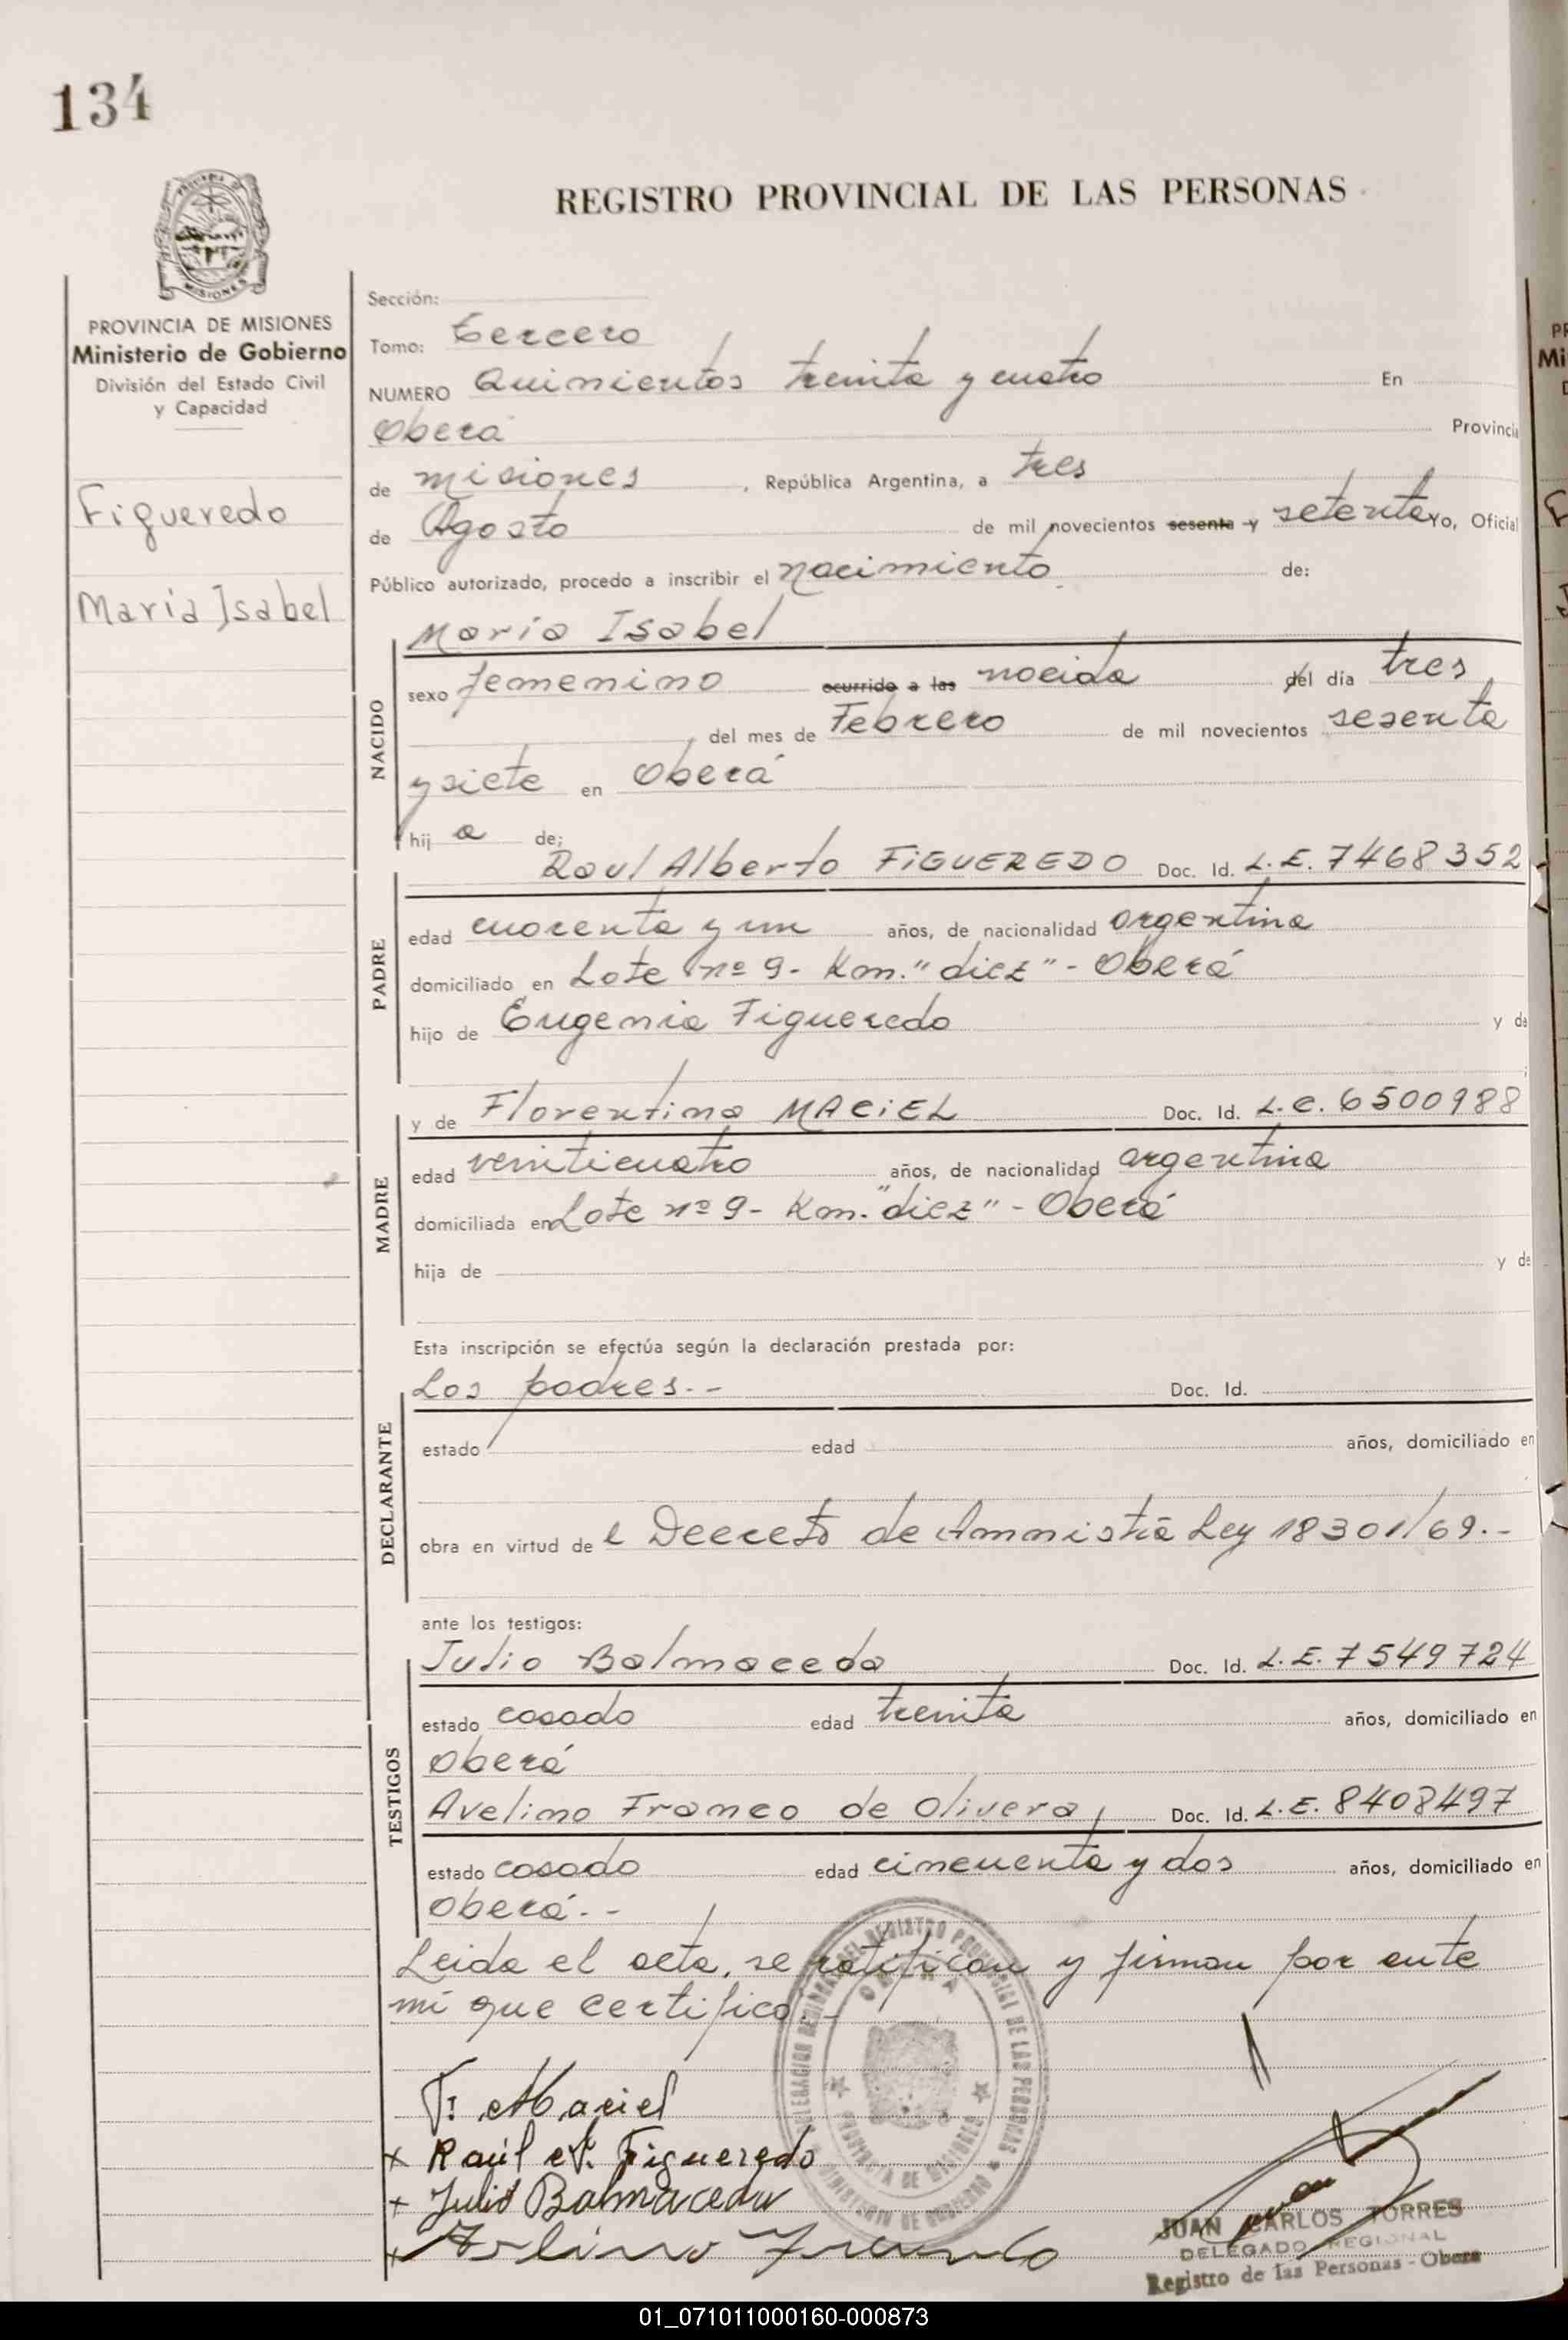 134
REGISTRO PROVINCIAL DE LAS PERSONAS
MISIONES
PROVINCIA DE MISIONES
Ministerio de Gobierno
División del Estado Civil
y Capacidad
Figueredo
Maria Isabel
Sección:
Tomo: tercero
NUMERO Quinientos treinta y cuatro En
Oberá Provincia
de misiones, República Argentina, a tres
de Agosto de mil novecientos sesenta y setenta Yo, Oficial
Público autorizado, procedo a inscribir el nacimiento de:
NACIDO
María Isabel
sexo femenino ocurrido a las nacida del día tres
del mes de Febrero de mil novecientos sesenta
y siete en Oberá
hij a de:
PADRE
Raul Alberto FIGUEREDO Doc. Id. L.E. 7468352
edad cuarenta y un años, de nacionalidad argentina
domiciliado en Lote nº 9- Km. "diez" - Oberá
hijo de Eugenia Figueredo y de
MADRE
y de Florentina MACIEL Doc. Id. L.C. 6500988
edad veinticuatro años, de nacionalidad argentina
domiciliada en Lote nº 9- Km. "diez" - Oberá
hija de y de
Esta inscripción se efectúa según la declaración prestada por:
DECLARANTE
Los padres.- Doc. Id.
estado edad años, domiciliado en
obra en virtud de l Decreto de Amnistía Ley 18301/69.-
ante los testigos:
TESTIGOS
Julio Balmaceda Doc. Id. L.E. 7549724
estado casado edad treinta años, domiciliado en
Oberá
Avelino Franco de Olivera, Doc. Id. L.E. 8408497
estado casado edad cincuenta y dos años, domiciliado en
Oberá.-
Leida el acta, se ratifican y firman por ante
mí que certifico.-
DELEGACION REGIONAL DEL REGISTRO PROVINCIAL DE LAS PERSONAS
OBERA
PROVINCIA DE MISIONES
MINISTERIO DE GOBIERNO
F. Maciel
x Raúl A. Figueredo
+ Julio Balmaceda
+ Avelino Franco
JUAN CARLOS TORRES
DELEGADO REGIONAL
Registro de las Personas - Obera
01_071011000160-000873